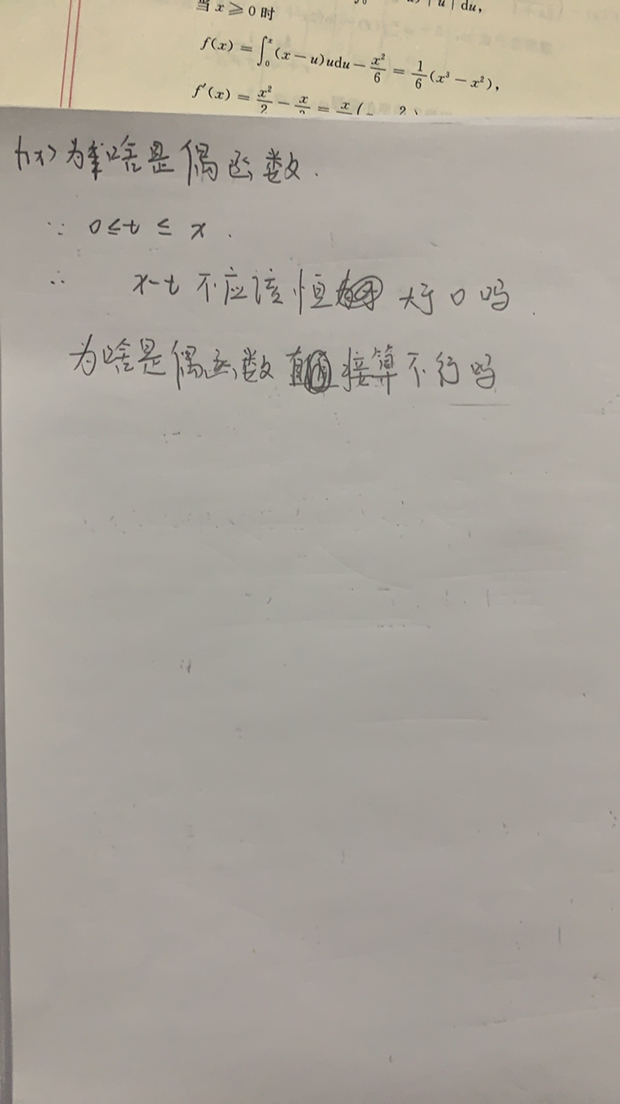 当 x ⩾ 0 时
| u | du,
f(x) = ∫₀ˣ (x − u)udu − x²/6 = 1/6 (x³ − x²),
f′(x) = x²/2 − x/
f(x) 为啥是偶函数.
∵ 0 ≤ t ≤ x .
∴ x-t 不应该恒 大于 0 吗 .
为啥是偶函数 直接算不行吗